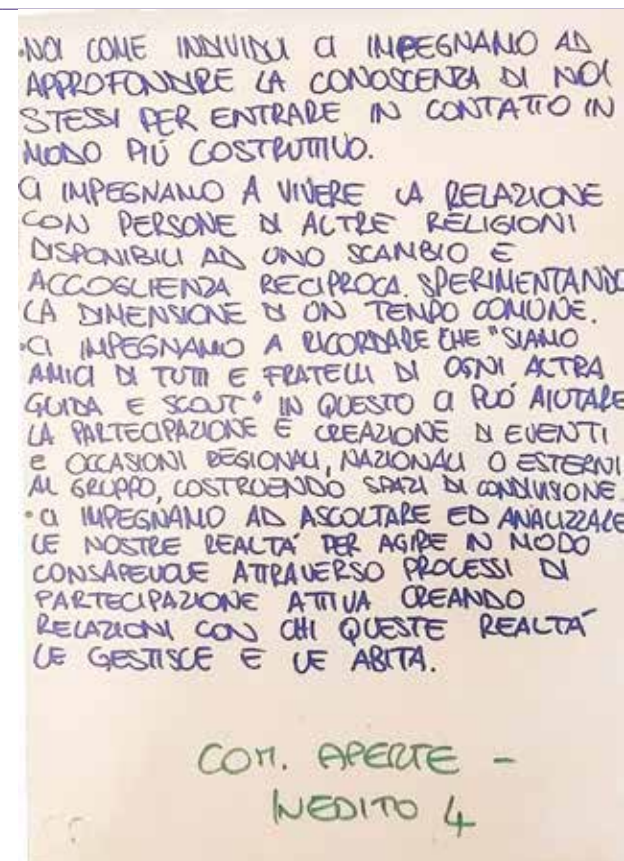 •NOI COME INDIVIDUI CI IMPEGNAMO AD
APPROFONDIRE LA CONOSCENZA DI NOI
STESSI PER ENTRARE IN CONTATTO IN
MODO PIÙ COSTRUTTIVO.
CI IMPEGNAMO A VIVERE LA RELAZIONE
CON PERSONE DI ALTRE RELIGIONI
DISPONIBILI AD UNO SCAMBIO E
ACCOGLIENZA RECIPROCA SPERIMENTANDO
LA DIMENSIONE DI UN TEMPO COMUNE.
•CI IMPEGNAMO A RICORDARE CHE "SIAMO
AMICI DI TUTTI E FRATELLI DI OGNI ALTRA
GUIDA E SCOUT" IN QUESTO CI PUÓ AIUTARE
LA PARTECIPAZIONE E CREAZIONE DI EVENTI
E OCCASIONI REGIONALI, NAZIONALI O ESTERNI
AL GRUPPO, COSTRUENDO SPAZI DI CONDIVISIONE
•CI IMPEGNAMO AD ASCOLTARE ED ANALIZZARE
LE NOSTRE REALTÁ PER AGIRE IN MODO
CONSAPEVOLE ATTRAVERSO PROCESSI DI
PARTECIPAZIONE ATTIVA CREANDO
RELAZIONI CON CHI QUESTE REALTÁ
LE GESTISCE E LE ABITA.
COM. APERTE -
INEDITO 4